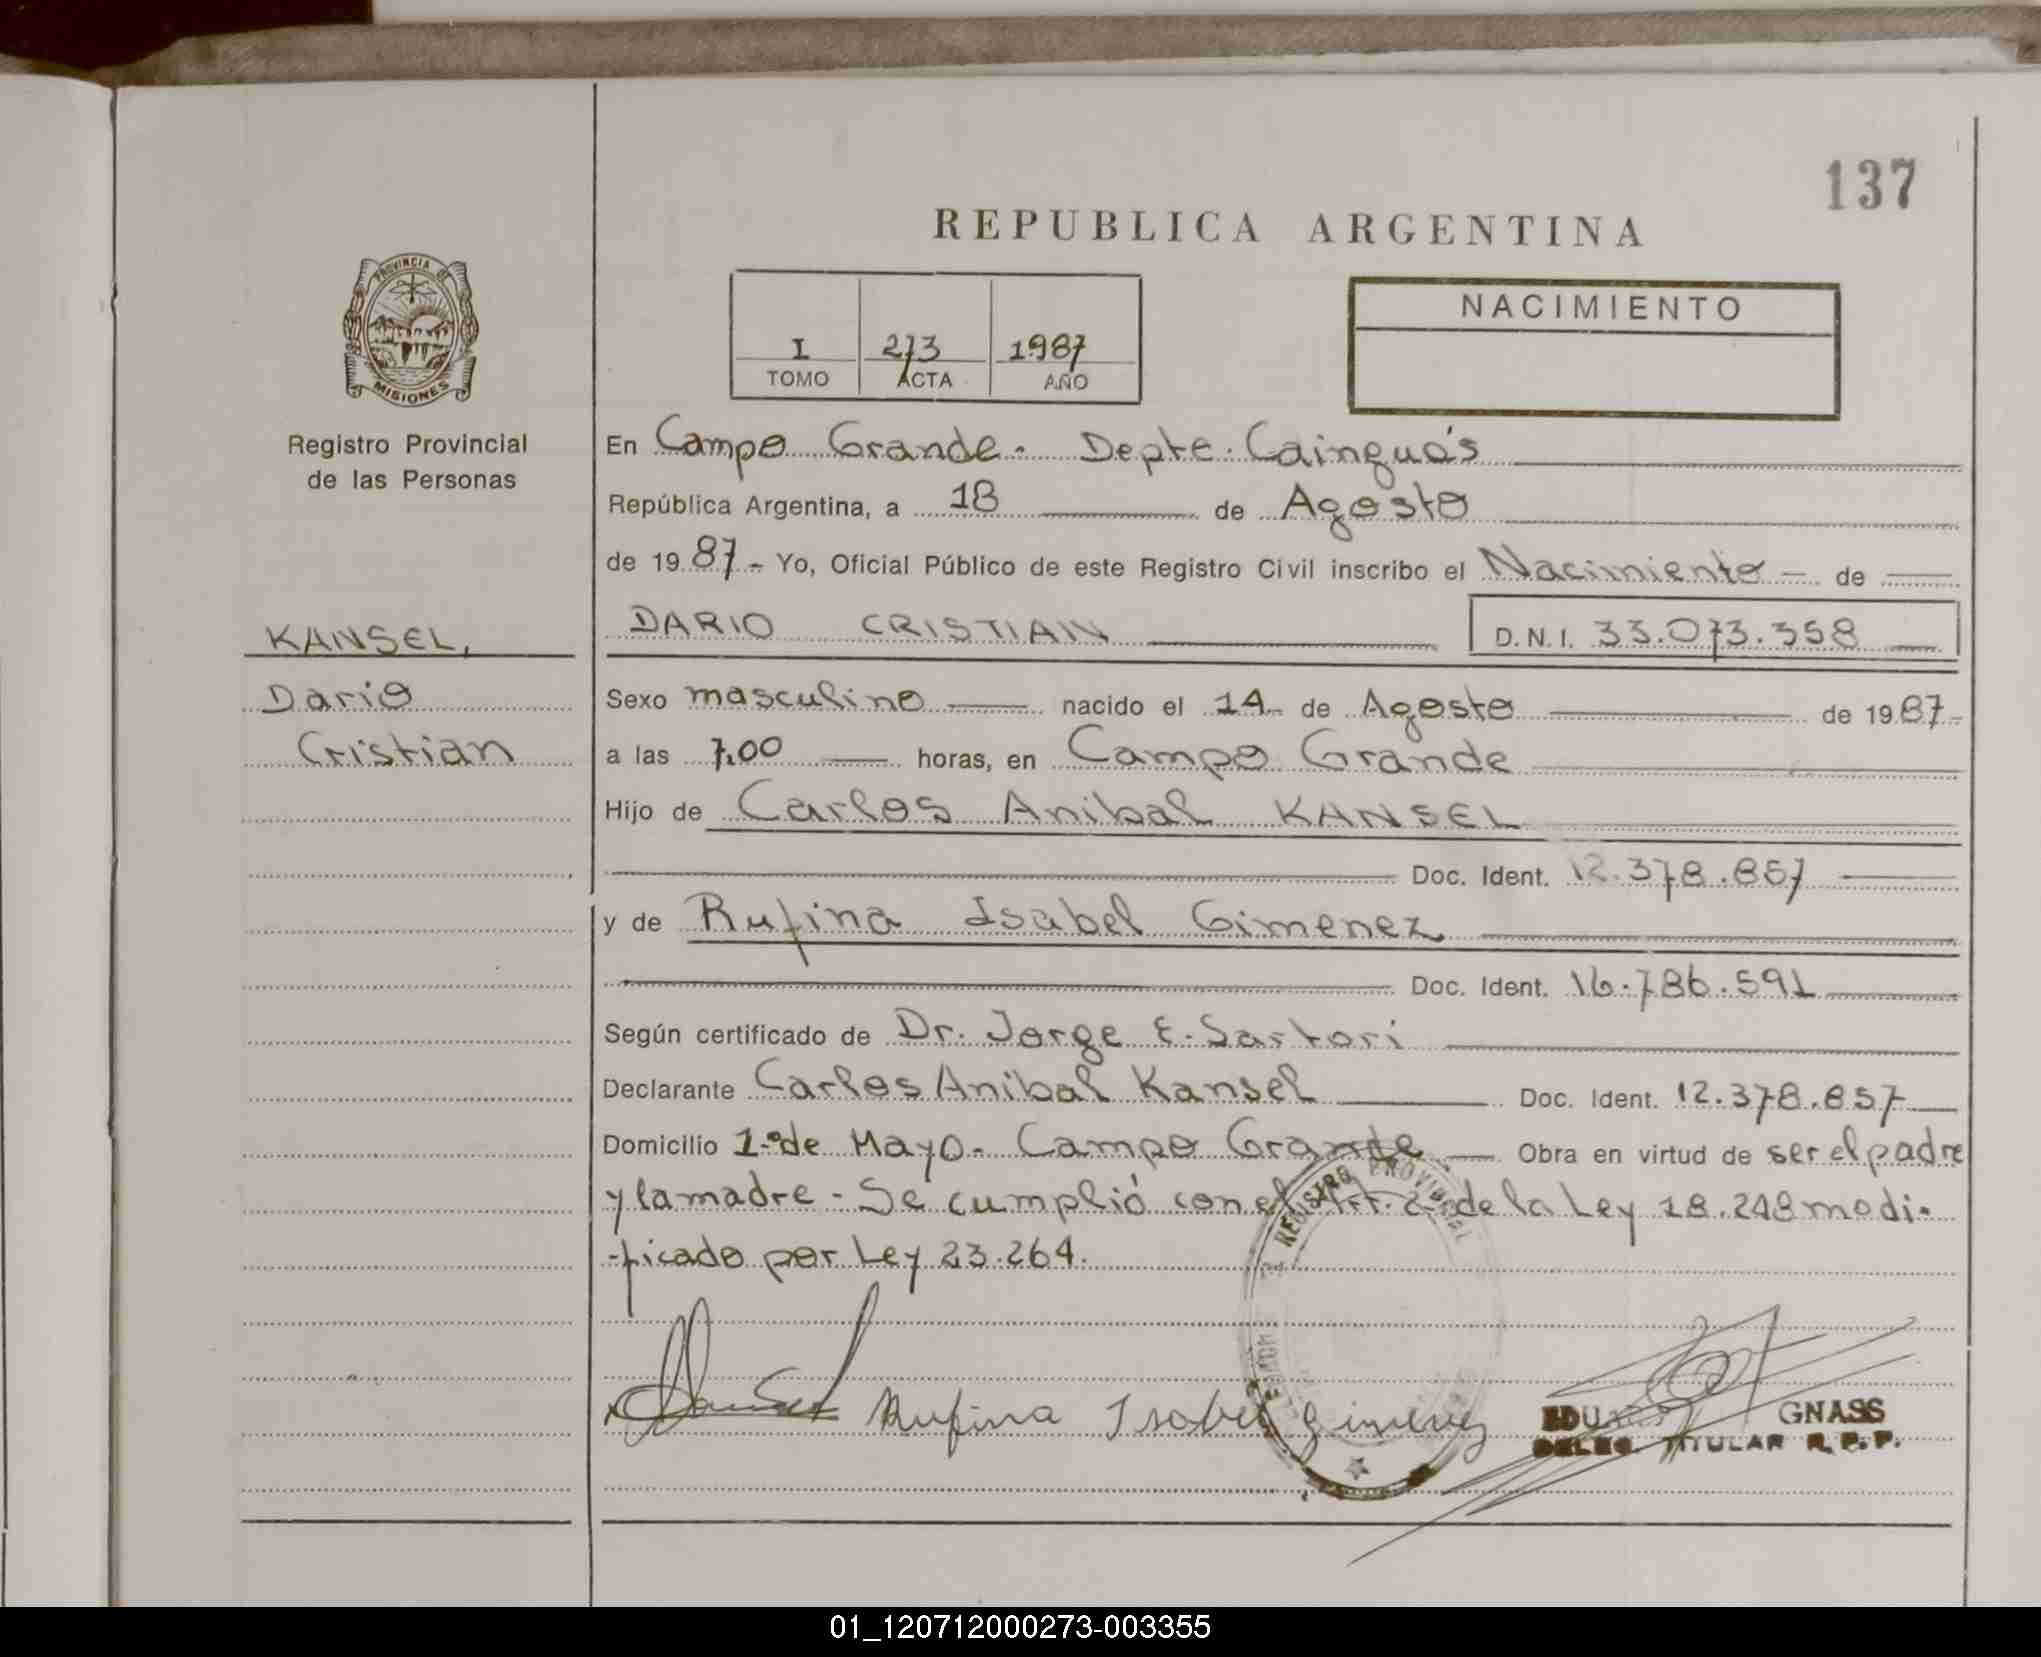 137
REPUBLICA ARGENTINA
PROVINCIA DE
MISIONES
Registro Provincial
de las Personas
I 273 1987
TOMO ACTA AÑO
NACIMIENTO
En Campo Grande - Depte. Cainguás
República Argentina, a 18 de Agosto
de 1987 - Yo, Oficial Público de este Registro Civil inscribo el Nacimiento - de
DARIO CRISTIAN D.N.I. 33.073.358
KANSEL,
Dario
Cristian
Sexo masculino nacido el 14 de Agosto de 1987-
a las 7,00 horas, en Campo Grande
Hijo de Carlos Anibal KANSEL
Doc. Ident. 12.378.857
y de Rufina Isabel Gimenez
Doc. Ident. 16.786.591
Según certificado de Dr. Jorge E. Sartori
Declarante Carlos Anibal Kansel Doc. Ident. 12.378.857
Domicilio 1º de Mayo - Campo Grande Obra en virtud de ser el padre
y la madre - Se cumplió con el Art. 2 de la Ley 18.248 modi-
-ficado por Ley 23.264.
REGISTRO PROVINCIAL
Rufina Isabel Gimenez
GNASS
DELEG. TITULAR R.P.P.
01_120712000273-003355